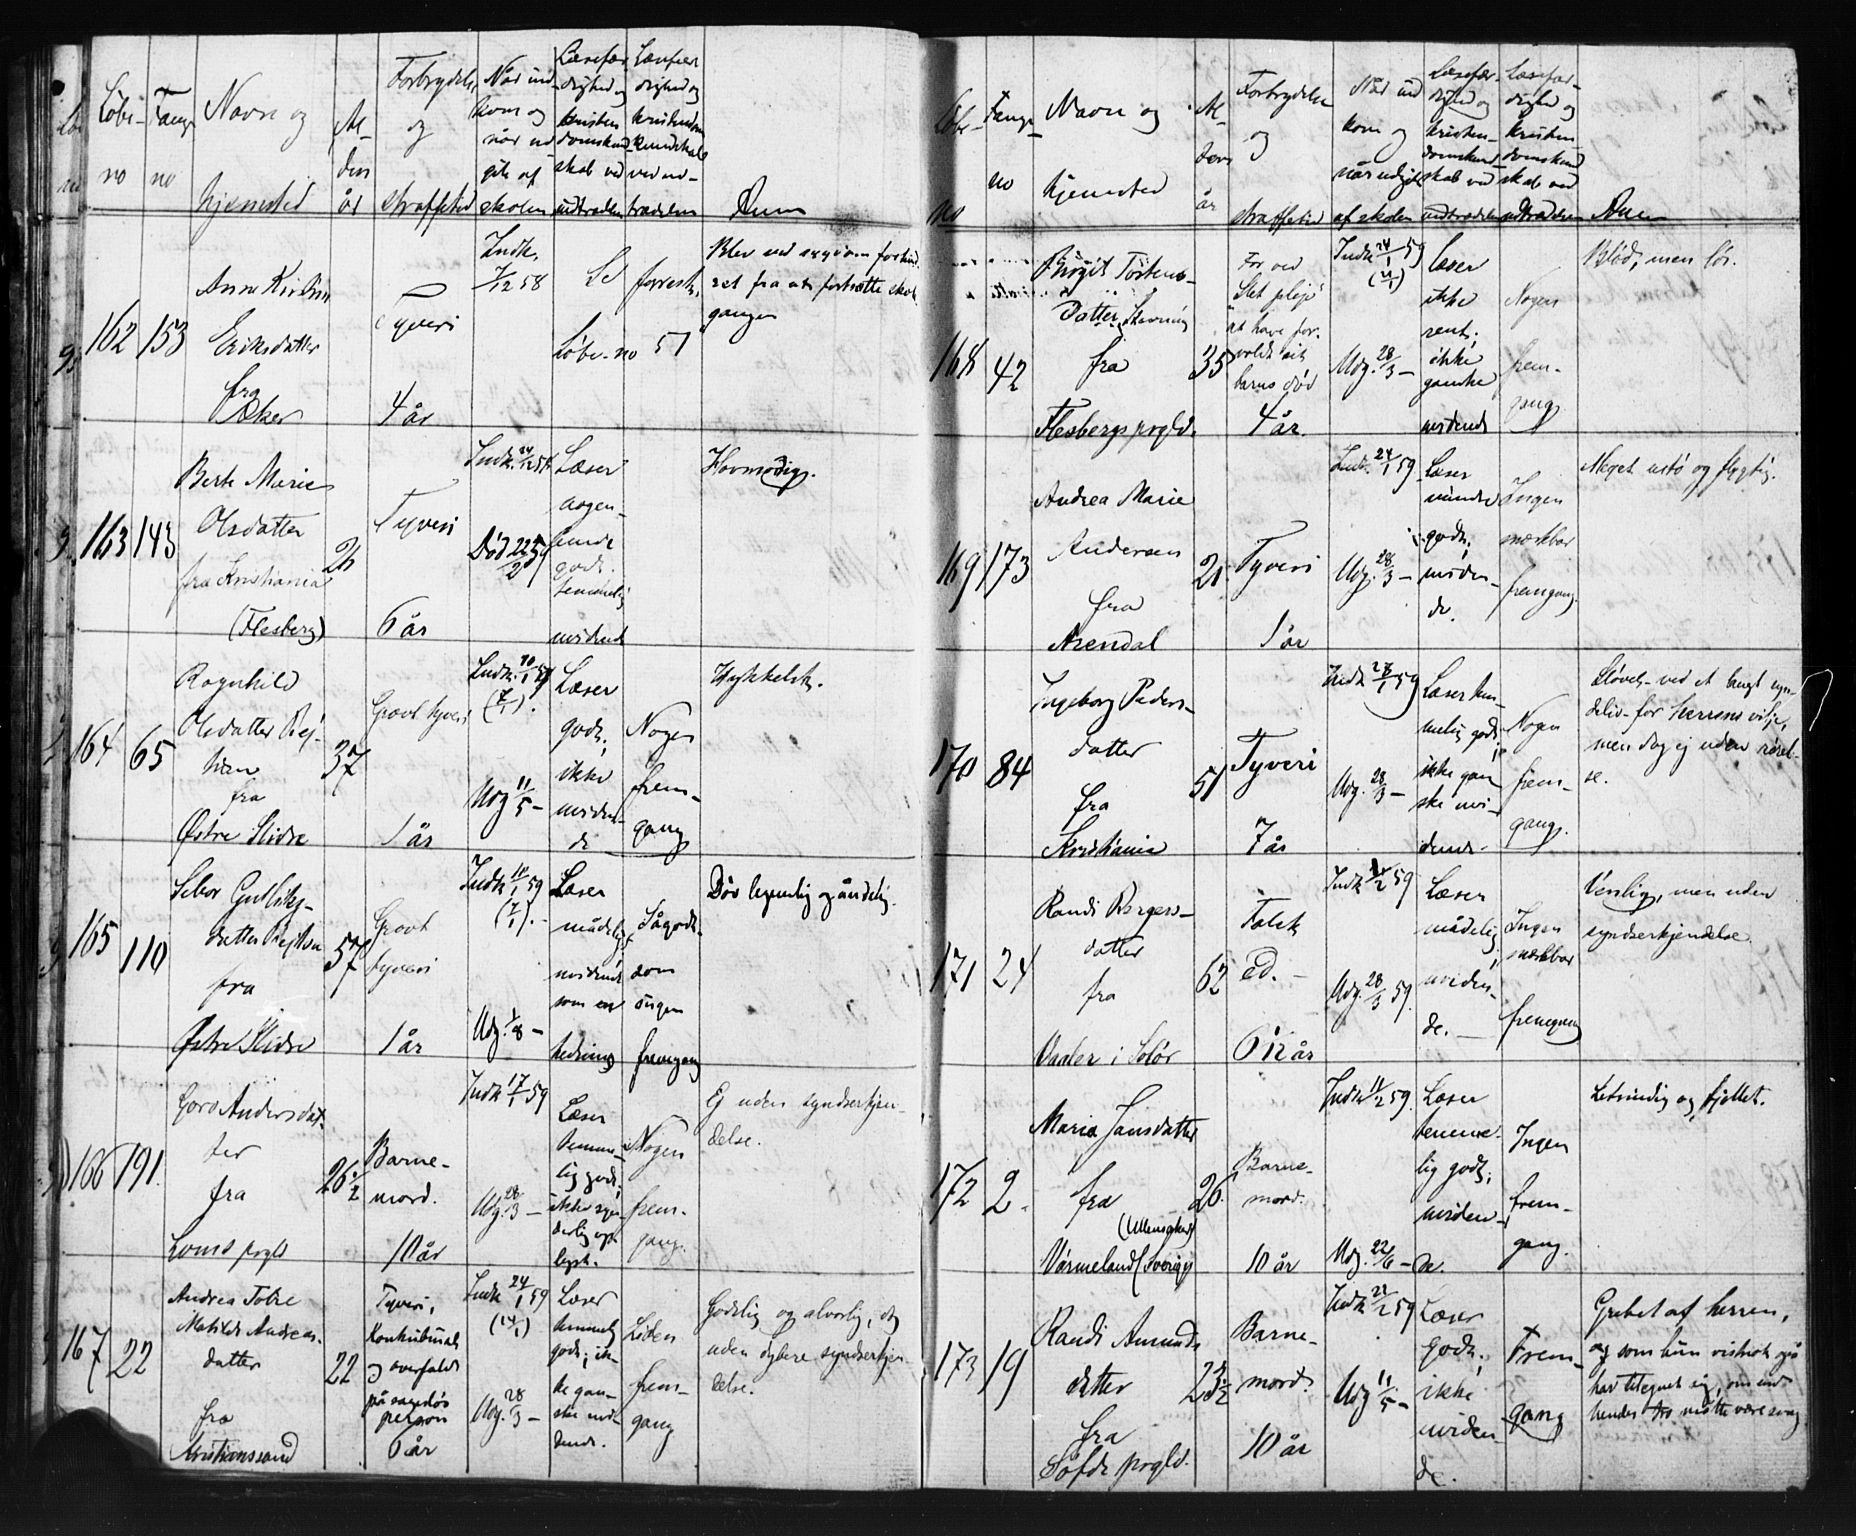 Løbe-
no
Fange
no
Navn og
hjemsted
Al-
der
år
Forbrydelse
og
straffetid
Når ind
kom og
når ud
gik af
skolen
Læsefær
dighed og
kristen
domskund
skab ved
indtrædelsen
Læsefær
dighed og
kristendoms
kundskab
ved ud-
trædelsen
Anm
162
153
Anne Kirstine
Eriksdatter
fra
Aker
Tyveri
4 år
Indk.
7/12 58
Se
Løbe-no 57
forrest.
Blev ved sygdom forhind
ret fra at fortsætte skole
gangen
163
143
Berte Marie
Olsdatter
fra Kristiania
(Flesberg)
26
Tyveri
6 år
Indk. 24/12 58
Død 22/2 59
Læser
nogen-
lunde
godt.
temmelig
uvidende
Hovmodig.
164
65
Ragnhild
Olsdatter Rej-
fra
Østre Slidre
37
Grovt tyveri
1 år
Indk. 10/1 59
(7/1).
Udg 11/5 -
Læser
godt;
ikke
uviden-
de
Nogen
frem-
gang
Hykkelsk.
165
110
datter
fra
Østre Slidre
57
Grovt
tyveri
1 år
Indk 10/1 59
(7/1). -
Udg. 1/8 -
Læser
mådelig;
uvidende
som en
hedning
Sågodt-
som
ingen
fremgang
Døv legemlig og åndelig.
166
191.
Goro Andersdat-
ter
fra
Loms prgld
26 1/2
Barne-
mord.
10 år
Indk 17/1 59
Udg. 28/3 -
Læser
temme-
lig godt;
ikke syn
derlig op
lyst.
Nogen
frem-
gang.
Ej uden syndserkjen-
delse.
167
22
Andrea Tobie
Matilde Andreas-
datter
fra
Kristianssand
22
Tyveri,
konkubinat
og overfald
på sagesløs
person
6 år
Indk 24/1 59
(14/1)
Udg. 28/3 -
Læser
temmelig
godt; ik-
ke gan-
ske uvi-
dende.
Liden
frem-
gang
Godslig og alvorlig, dog
uden dybere syndserkjen
delse.
Løbe-
no
Fange
no
Navn og
hjemsted
Al-
ders
år
Forbrydelse
og
straffetid
Når ind
kom og
når udgik
af skolen
Læsefær-
dighed og
kristen-
domskund
skab ved
indtrædelsen
Læsefær-
dighed og
kristen-
domskund
skab ved
udtrædelsen
Anm
168
42
Birgit Torstens-
datter
fra
Flesbergs prgld.
35
For ved
"slet pleje"
at have for-
voldt sit
barns død
4 år.
Indk 24/1 59
Udg. 28/3 -
Læser
ikke
rent;
ikke
ganske
uvidende
Nogen
frem-
gang
Blød, men løs.
169
173
Andrea Marie
Andersen
fra
Arendal
21
Tyveri
1 år
Indk. 24/1 59
Udg. 28/3 -
Læser
mindre
godt;
uviden-
de.
Ingen
mærkbar
fremgang.
Meget ustø og flygtig.
170
84
Ingeborg Peders-
datter
fra
Kristiania
51
Tyveri
7 år
Indk 27/1 59
Udg. 28/3 -
Læser tem
melig godt;
ikke gan
ske uvi-
dende.
Nogen
frem-
gang.
Sløvet ved et langt syn-
deliv for herrens vilje,
men dog ej uden rørel-
se.
171
24
Randi Børgers-
datter
fra
Vaaler i Solør
62
Falsk
ed. -
6 1/2 år
Indk 1/2 59
Udg. 28/3 59.
Læser
mådelig;
uviden-
de. -
Ingen
mærkbar
fremgang
Venlig, men uden
syndserkjendelse.
172
2.
Maria Jansdatter
fra
(Ullensaker)
Värmeland (Sverige)
26
Barne-
mord.
10 år
Indk 11/2 59
Udg. 22/6 -
Læser
temme-
lig godt;
uviden-
de.
Ingen
frem-
gang.
Letsindig og fjollet.
173
19
Randi Amunds-
datter
fra
prgld.
23 1/2
Barne-
mord.
10 år
Indk 21/2 59
Udg 11/5 -
Læser
godt;
ikke
uviden-
de.
Frem-
gang
Grebet af herren,
og som hun vistnok også
har tilegnet sig, om end
hendes tro måtte være svag